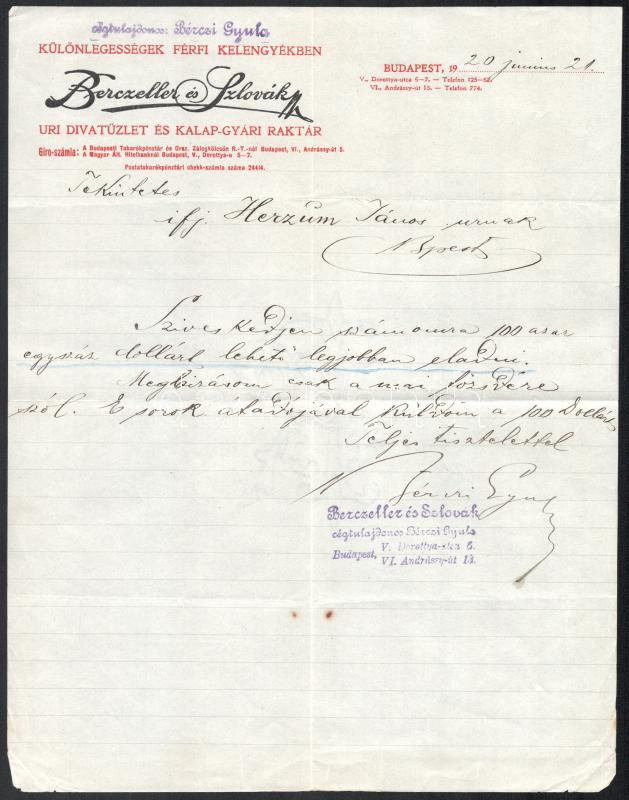 cégtulajdonos: Bérczi Gyula
KÜLÖNLEGESSÉGEK FÉRFI KELENGYÉKBEN
Berczeller és Szlovák
URI DIVATÜZLET ÉS KALAP-GYÁRI RAKTÁR
Giro-számla: A Budapesti Takarékpénztár és Orsz. Zálogkölcsön R.-T.-nál Budapest, VI., Andrássy-út 5.
A Magyar Ált. Hitelbanknál Budapest, V., Dorottya-u 5-7.
Postatakarékpénztári chekk-számla száma 24414.
BUDAPEST, 1920 junius 21.
V., Dorottya-utca 5-7. — Telefon 125-62.
VI., Andrássy-út 15. — Telefon 774.
Tekintetes
ifj. Herzum János urnak
Bpest
Sziveskedjen számomra 100 azaz
egyszáz dollárt lehető legjobban eladni.
Megbizásom csak a mai tőzsdére
szól. E sorok átadójával küldöm a 100 Dollárt
Teljes tisztelettel
Bérczi Gyula
Berczeller és Szlovák
cégtulajdonos Bérczi Gyula
Budapest, V. Dorottya-utca 6.
VI. Andrássy-út 13.